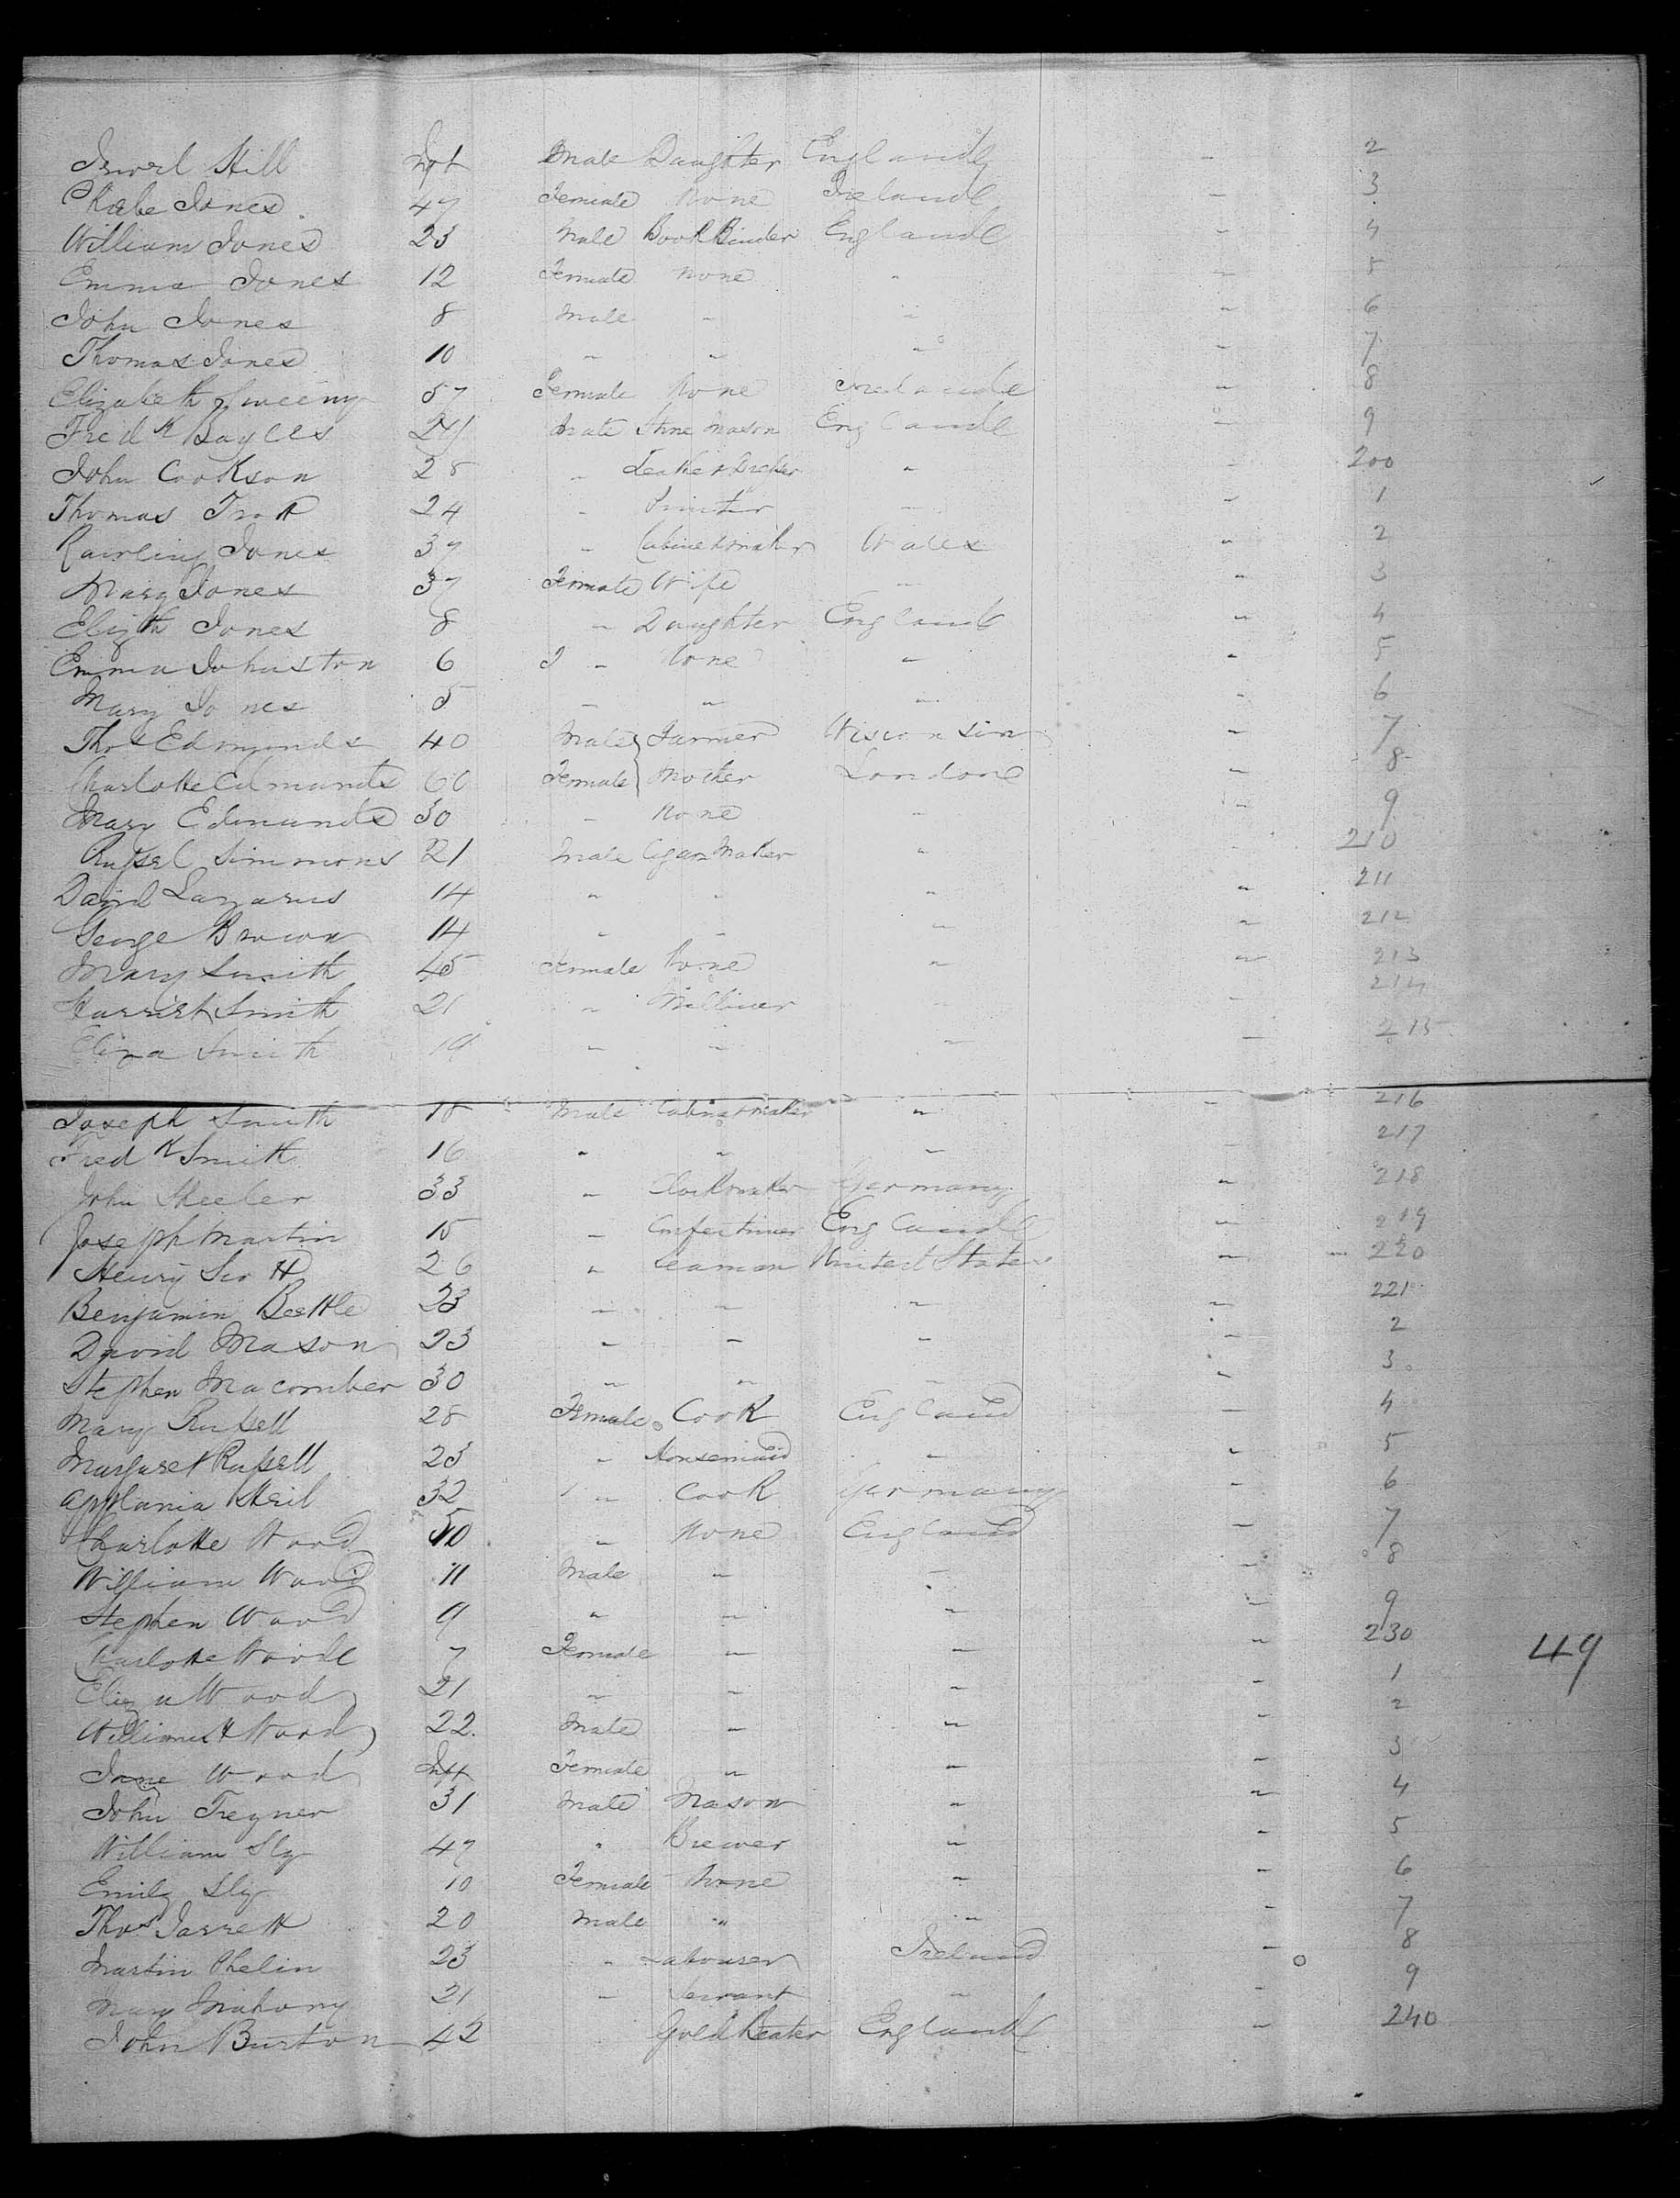 Hill Inft Male Daughter England - 2
Jones 47 Female None Ireland - 3
William Jones 23 Male Book Binder England - 4
Emma Jones 12 Female None " - 5
John Jones 8 Male " " - 6
Thomas Jones 10 " " " - 7
Elizabeth Sweeny 57 Female None Ireland - 8
Fredk Bayles 24 Male Stone Mason England - 9
John Cookson 28 " Leather " - 200
Thomas 24 " Printer " - 1
Jones 37 " Cabinetmaker Wales - 2
Mary Jones 37 Female Wife " - 3
Elizth Jones 8 " Daughter England - 4
Emma Johnston 6 " None " - 5
Mary Jones 5 " " " - 6
Thos Edmonds 40 Male Farmer Wisconsin - 7
Charlotte Edmunds 60 Female Mother London - 8
Mary Edmunds 30 " None " - 9
Simmons 21 Male Cigar Maker " - 210
David Lazarus 14 " " " - 211
George Brown 14 " " " - 212
Mary Smith 45 Female None " - 213
Harriet Smith 21 " Milliner " - 214
Eliza Smith 19 " " " - 215
Joseph Smith 18 Male Cabinetmaker " - 216
Fredk Smith 16 " " " - 217
John 33 " Clockmaker Germany - 218
Joseph Martin 15 " Confectiner England - 219
Henry 26 " Seaman United States - 220
Benjamin Beettle 23 " " " - 221
David Mason 23 " " " - 2
Stephen Macomber 30 " " " - 3
Mary Russell 28 Female Cook England - 4
Margaret Russell 23 " Housemaid " - 5
32 " Cook Germany - 6
Charlotte Wood 50 " None England - 7
William Wood 11 Male " " - 8
Stephen Wood 9 " " " - 9
Charlotte Wood 7 Female " " - 230
49
Eliza Wood 21 " " " - 1
William H Wood 22 Male " " - 2
Jane Wood Inft Female " " - 3
John Tregner 31 Male Mason " - 4
William Sly 47 " Brewer " - 5
Emily Sly 10 Female None " - 6
Thos Jarrett 20 Male " " - 7
Martin Phelin 23 " Labourer Ireland - 8
Mary Mahony 21 " Servant " - 9
John Burton 42 Gold Beater England - 240